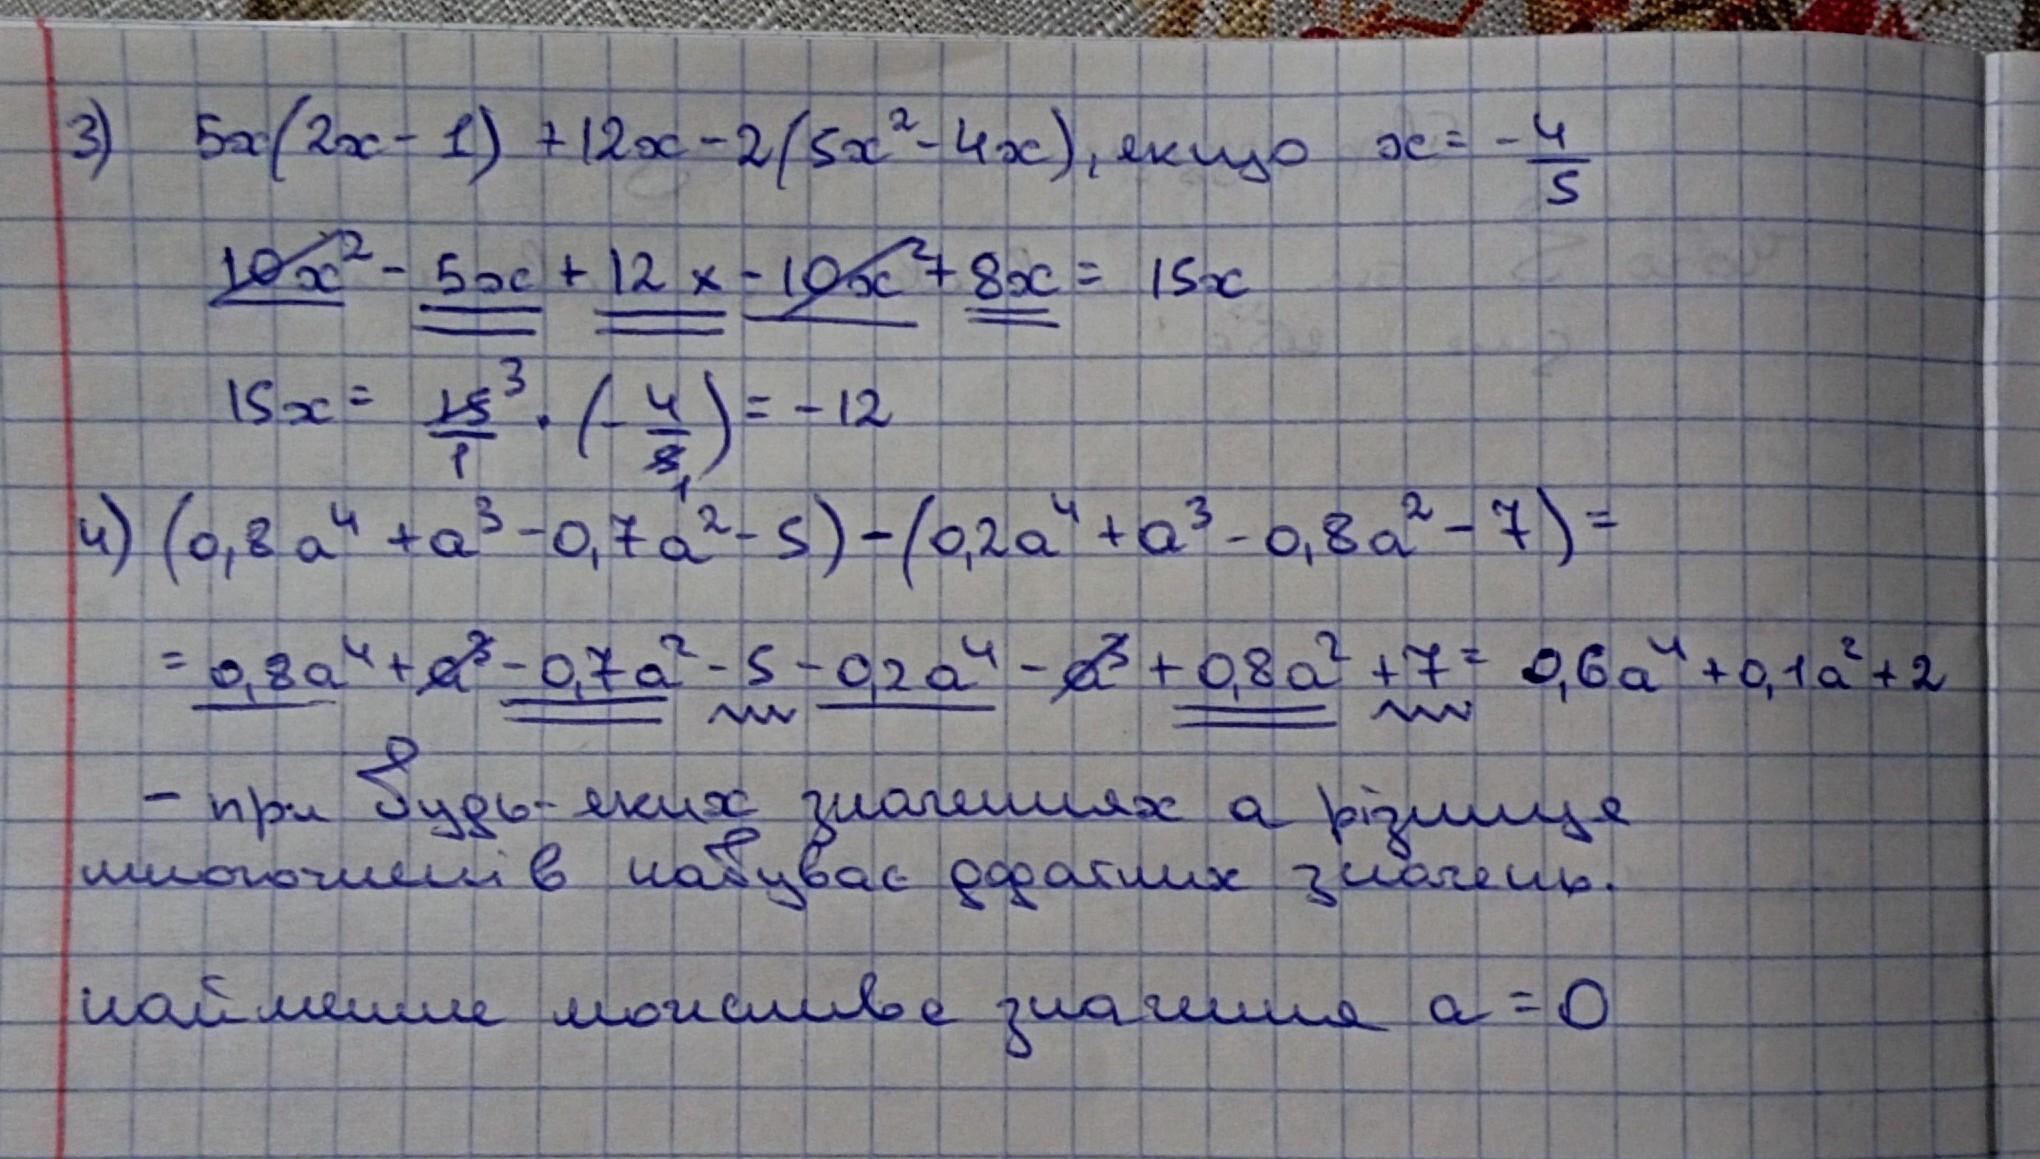 3) 5x(2x-1)+12x-2(5x²-4x), якщо x = -4/5
10x² - 5x + 12x - 10x² + 8x = 15x
15x = 15/1 ³ · (-4/5 ₁) = -12
4) (0,8a⁴ + a³ - 0,7a² - 5) - (0,2a⁴ + a³ - 0,8a² - 7) =
= 0,8a⁴ + a³ - 0,7a² - 5 - 0,2a⁴ - a³ + 0,8a² + 7 = 0,6a⁴ + 0,1a² + 2
- при будь-яких значеннях a різниця
многочленів набуває додатних значень.
найменше можливе значення a = 0